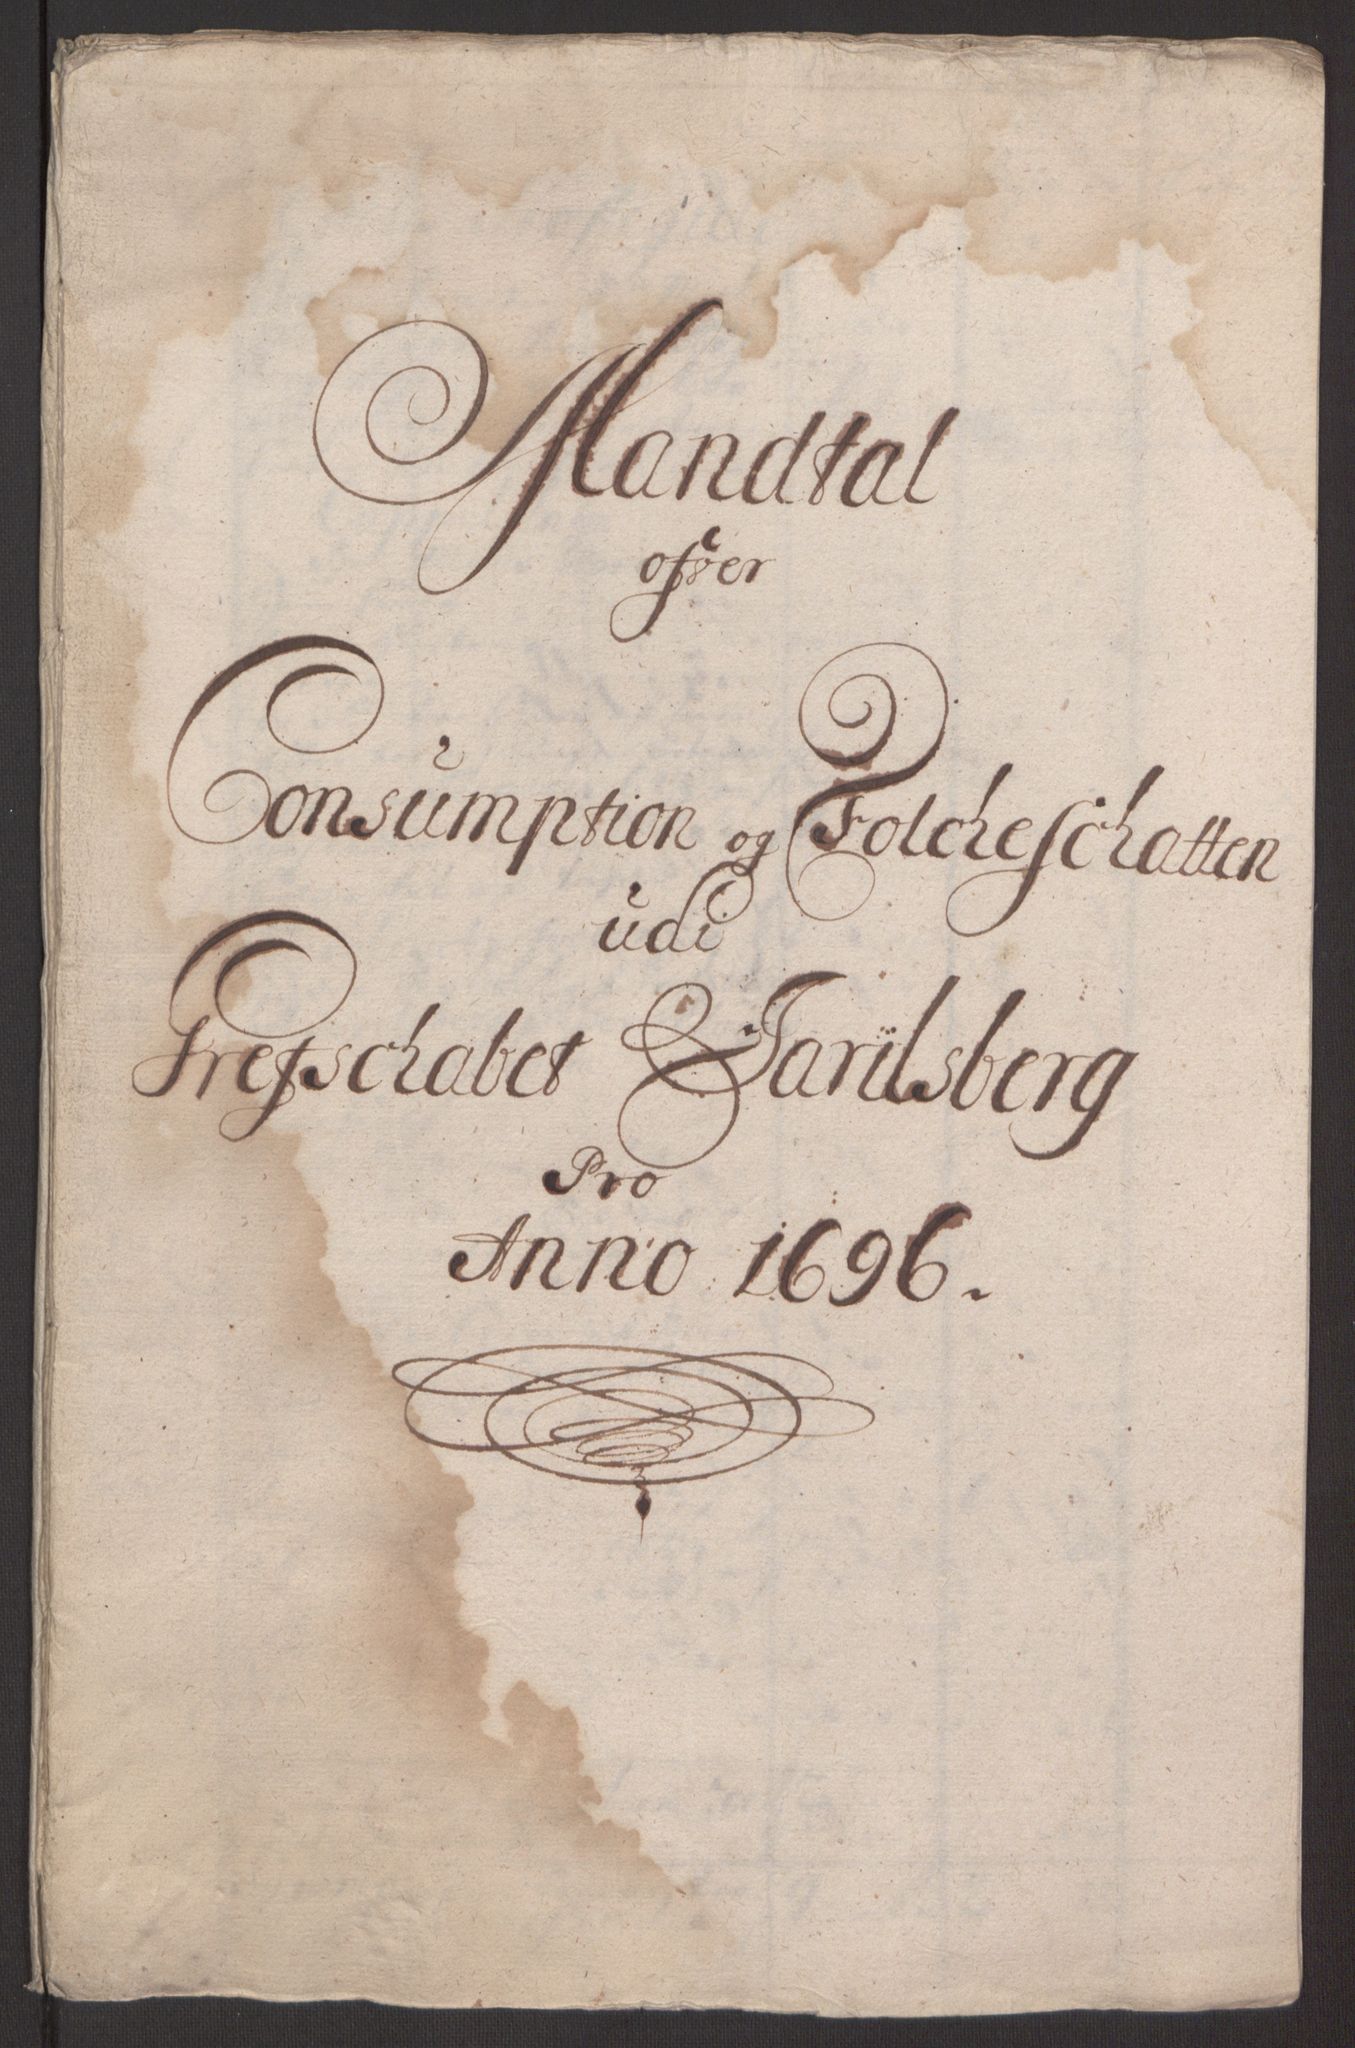 Mandtal
ofver
Consumption og Folcheschatten
udi
Grefschabet Jarilsberg
Pro
Anno 1696.